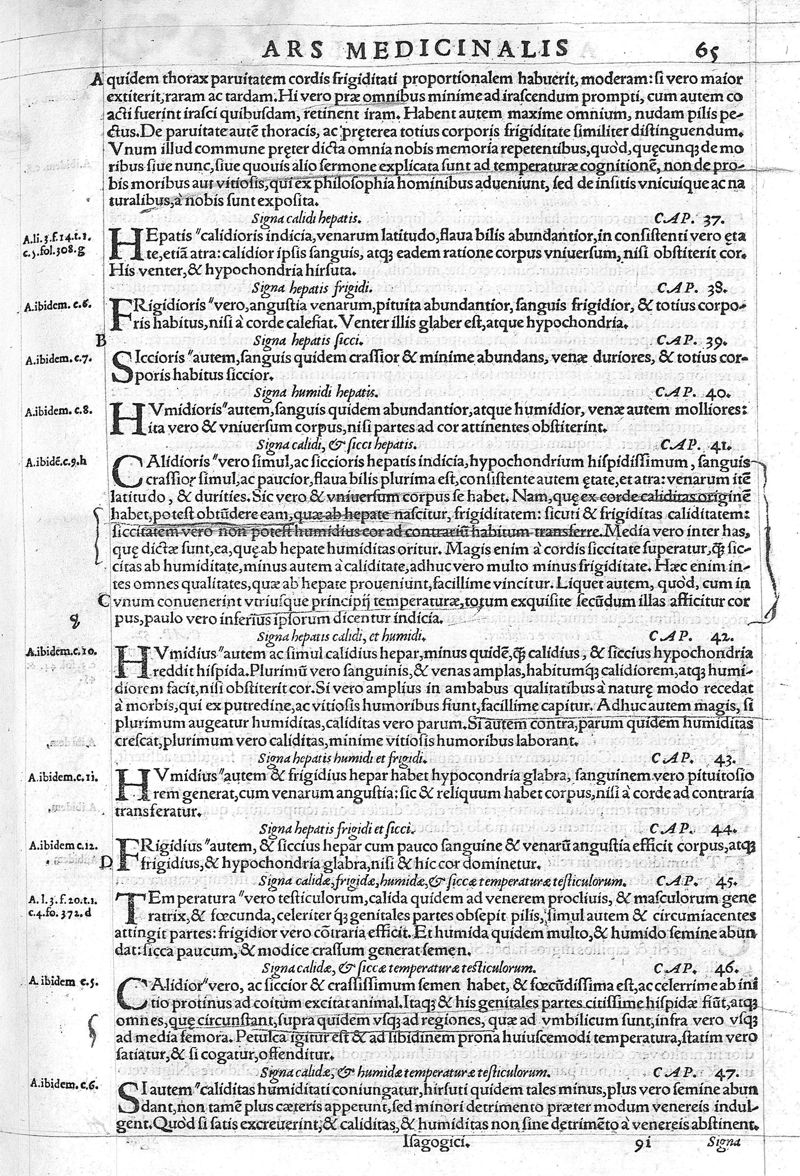 ARS MEDICINALIS 65
A quidem thorax paruitatem cordis frigiditati proportionalem habuerit, moderam: si vero maior
extiterit, raram ac tardam. Hi vero præ omnibus minime ad irascendum prompti, cum autem co
acti fuerint irasci quibusdam, retinent iram. Habent autem maxime omnium, nudam pilis pe-
ctus. De paruitate autē thoracis, ac pręterea totius corporis frigiditate similiter distinguendum.
Vnum illud commune pręter dicta omnia nobis memoria repetentibus, quòd, quęcunq; de mo
ribus siue nunc, siue quouis alio sermone explicata sunt ad temperaturæ cognitionē, non de pro-
bis moribus aut vitiosis, qui ex philosophia hominibus adueniunt, sed de insitis vnicuique ac na
turalibus, à nobis sunt exposita.
Signa calidi hepatis. CAP. 37.
A.li.3.f.14.t.1.
c.5.fol.308.g
HEpatis "calidioris indicia, venarum latitudo, flaua bilis abundantior, in consistenti vero ęta
te, etiā atra: calidior ipsis sanguis, atq; eadem ratione corpus vniuersum, nisi obstiterit cor.
His venter, & hypochondria hirsuta.
Signa hepatis frigidi. CAP. 38.
A.ibidem.c.6.
FRigidioris "vero, angustia venarum, pituita abundantior, sanguis frigidior, & totius corpo-
ris habitus, nisi à corde calefiat. Venter illis glaber est, atque hypochondria.
B Signa hepatis sicci. CAP. 39.
A.ibidem.c.7.
SIccioris "autem, sanguis quidem crassior & minime abundans, venæ duriores, & totius cor-
poris habitus siccior.
Signa humidi hepatis. CAP. 40.
A.ibidem.c.8.
HVmidioris "autem, sanguis quidem abundantior, atque humidior, venæ autem molliores:
ita vero & vniuersum corpus, nisi partes ad cor attinentes obstiterint.
Signa calidi, & sicci hepatis. CAP. 41.
A.ibidē.c.9.h
CAlidioris "vero simul, ac siccioris hepatis indicia, hypochondrium hispidissimum, sanguis
crassior simul, ac paucior, flaua bilis plurima est, consistente autem ętate, et atra: venarum itē
latitudo, & durities. Sic vero & vniuersum corpus se habet. Nam, quę ex corde caliditas originē
habet, potest obtūdere eam, quæ ab hepate nascitur, frigiditatem: sicuti & frigiditas caliditatem:
siccitatem vero non potest humidius cor ad contrariū habitum transferre. Media vero inter has,
quę dictæ sunt, ea, quę ab hepate humiditas oritur. Magis enim à cordis siccitate superatur, q̄ sic-
citas ab humiditate, minus autem à caliditate, adhuc vero multo minus frigiditate. Hæc enim in-
tes omnes qualitates, quæ ab hepate proueniunt, facillime vincitur. Liquet autem, quòd, cum in
C vnum conuenerint vtriusque principij temperaturæ, totum exquisite secūdum illas afficitur cor
pus, paulo vero inferius ipsorum dicentur indicia.
Signa hepatis calidi, et humidi. CAP. 42.
A.ibidem.c.10.
HVmidius "autem ac simul calidius hepar, minus quidē, q̄ calidius, & siccius hypochondria
reddit hispida. Plurimū vero sanguinis, & venas amplas, habitumq; calidiorem, atq; humi-
diorem facit, nisi obstiterit cor. Si vero amplius in ambabus qualitatibus à naturę modo recedat
à morbis, qui ex putredine, ac vitiosis humoribus fiunt, facillime capitur. Adhuc autem magis, si
plurimum augeatur humiditas, caliditas vero parum. Si autem contra, parum quidem humiditas
crescat, plurimum vero caliditas, minime vitiosis humoribus laborant.
Signa hepatis humidi et frigidi. CAP. 43.
A.ibidem.c.11.
HVmidius "autem & frigidius hepar habet hypocondria glabra, sanguinem vero pituitosio
rem generat, cum venarum angustia: sic & reliquum habet corpus, nisi à corde ad contraria
transferatur.
Signa hepatis frigidi et sicci. CAP. 44.
A.ibidem c.12.
FRigidius "autem, & siccius hepar cum pauco sanguine & venarū angustia efficit corpus, atq;
D frigidius, & hypochondria glabra, nisi & hic cor dominetur.
Signa calidæ, frigidæ, humidæ, & siccæ temperaturæ testiculorum. CAP. 45.
A.l.3.f.20.t.1.
c.4.fo.372.d
TEmperatura "vero testiculorum, calida quidem ad venerem procliuis, & masculorum gene
ratrix, & fœcunda, celeriter q; genitales partes obsepit pilis, simul autem & circumiacentes
attingit partes: frigidior vero cōtraria efficit. Et humida quidem multo, & humido semine abun
dat: sicca paucum, & modice crassum generat semen.
Signa calidæ, & siccæ temperaturæ testiculorum. CAP. 46.
A. ibidem c.5.
CAlidior "vero, ac siccior & crassissimum semen habet, & fœcūdissima est, ac celerrime ab ini
tio protinus ad coitum excitat animal. Itaq; & his genitales partes citissime hispidæ fiūt, atq;
omnes, quę circunstant, supra quidem vsq; ad regiones, quæ ad vmbilicum sunt, infra vero vsq;
ad media femora. Petulca igitur est & ad libidinem prona huiuscemodi temperatura, statim vero
satiatur, & si cogatur, offenditur.
Signa calidæ, & humidæ temperaturæ testiculorum. CAP. 47.
A.ibidem.c.6.
SI autem "caliditas humiditati coniungatur, hirsuti quidem tales minus, plus vero semine abun
dant, non tamē plus cæteris appetunt, sed minori detrimento præter modum venereis indul-
gent. Quòd si satis excreuerint, & caliditas, & humiditas non sine detrimēto à venereis abstinent.
Isagogici. 9i Signa